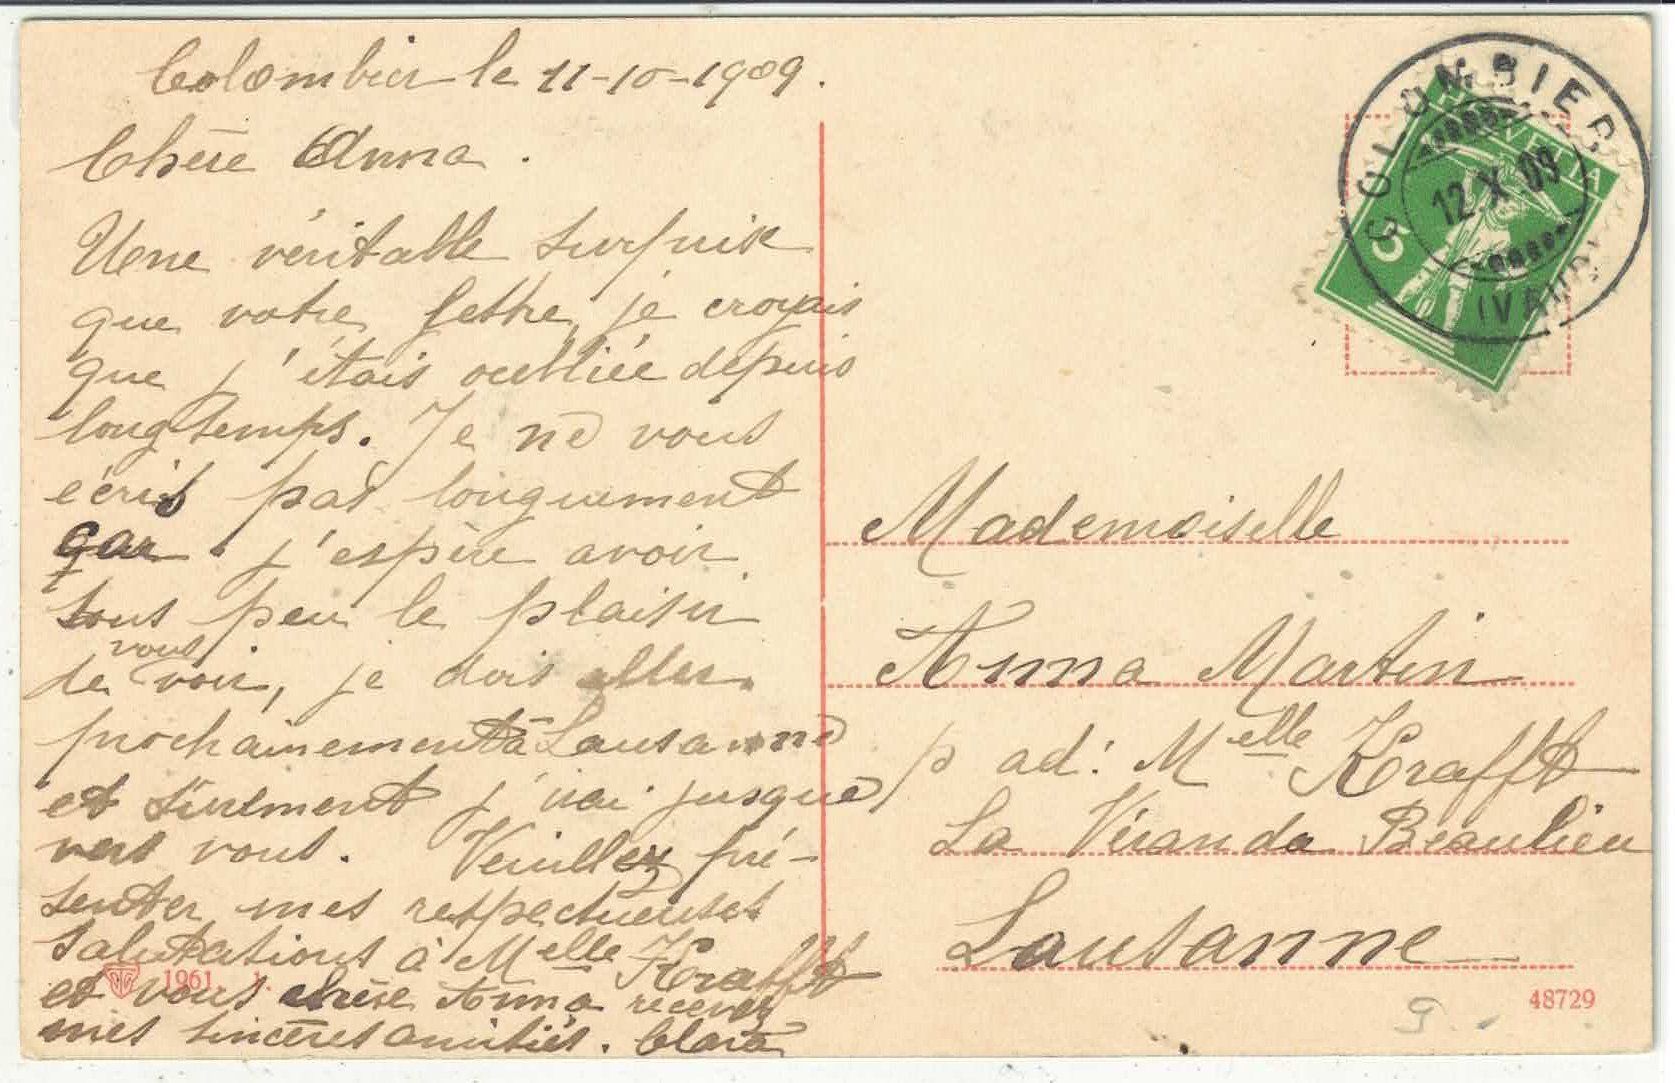 Colombier le 11-10-1909.
Chère Anna.
Une véritable surprise
que votre lettre, je croyais
que j'étais oubliée depuis
longtemps. Je ne vous
écris pas longuement
car j'espère avoir
sous peu le plaisir
de vous voir, je dois aller
prochainement à Lausanne
et sûrement j'irai jusque
vers vous. Veuillez pré-
senter mes respectueuses
salutations à Melle Krafft
et vous chère Anna recevez
mes sincères amitiés. Clara
1961. 1.
COLOMBIER
12 X 09
(VAUD)
HELVETIA
5
Mademoiselle
Anna Martin
p ad: Melle Krafft
La Véranda Beaulieu
Lausanne
48729
9